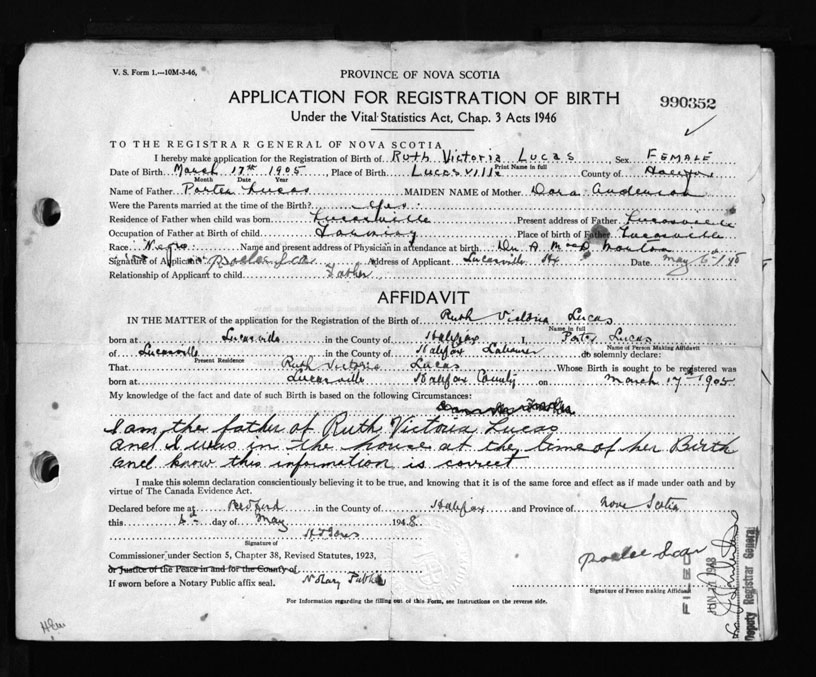 V. S. Form 1.—10M-3-46,
PROVINCE OF NOVA SCOTIA
APPLICATION FOR REGISTRATION OF BIRTH
990352
Under the Vital Statistics Act, Chap. 3 Acts 1946
TO THE REGISTRAR GENERAL OF NOVA SCOTIA
I hereby make application for the Registration of Birth of Ruth Victoria Lucas, Sex FEMALE
Print Name in full
Date of Birth March 17th 1905, Place of Birth Lucasville County of Halifax
Month Date Year
Name of Father Porter Lucas MAIDEN NAME of Mother Dora Anderson
Were the Parents married at the time of Birth? Yes.
Residence of Father when child was born Lucasville Present address of Father Lucasville
Occupation of Father at Birth of child Place of birth of Father Lucasville
Race Negro Name and present address of Physician in attendance at birth Dr A
Signature of Applicant Address of Applicant Lucasville Hx Date May 6
Relationship of Applicant to child Father
AFFIDAVIT
IN THE MATTER of the application for the Registration of Birth of Ruth Victoria Lucas
Name in full
born at Lucasville in the County of Halifax I, Porter Lucas
Name of Person Making Affidavit
of Lucasville in the County of Halifax Labourer do solemnly declare:
Present Residence
That Ruth Victoria Lucas Whose Birth is sought to be registered was
born at Lucasville Halifax County on March 17th 1905
My knowledge of the fact and date of such Birth is based on the following Circumstances:
I am the father of Ruth Victoria Lucas
and I was in the house at the time of her Birth
and know this information is correct
I make this solemn declaration conscientiously believing it to be true, and knowing that it is of the same force and effect as if made under oath and by
virtue of The Canada Evidence Act.
Declared before me at Bedford in the County of Halifax and Province of Nova Scotia
this 6th day of May 1948
Signature of
Commissioner under Section 5, Chapter 38, Revised Statutes, 1923,
or Justice of the Peace in and for the County of
If sworn before a Notary Public affix seal. Notary Public
Signature of Person making Affidavit
FILED
JUN 10 1948
Deputy Registrar General
For Information regarding the filling out of this Form, see Instructions on the reverse side.